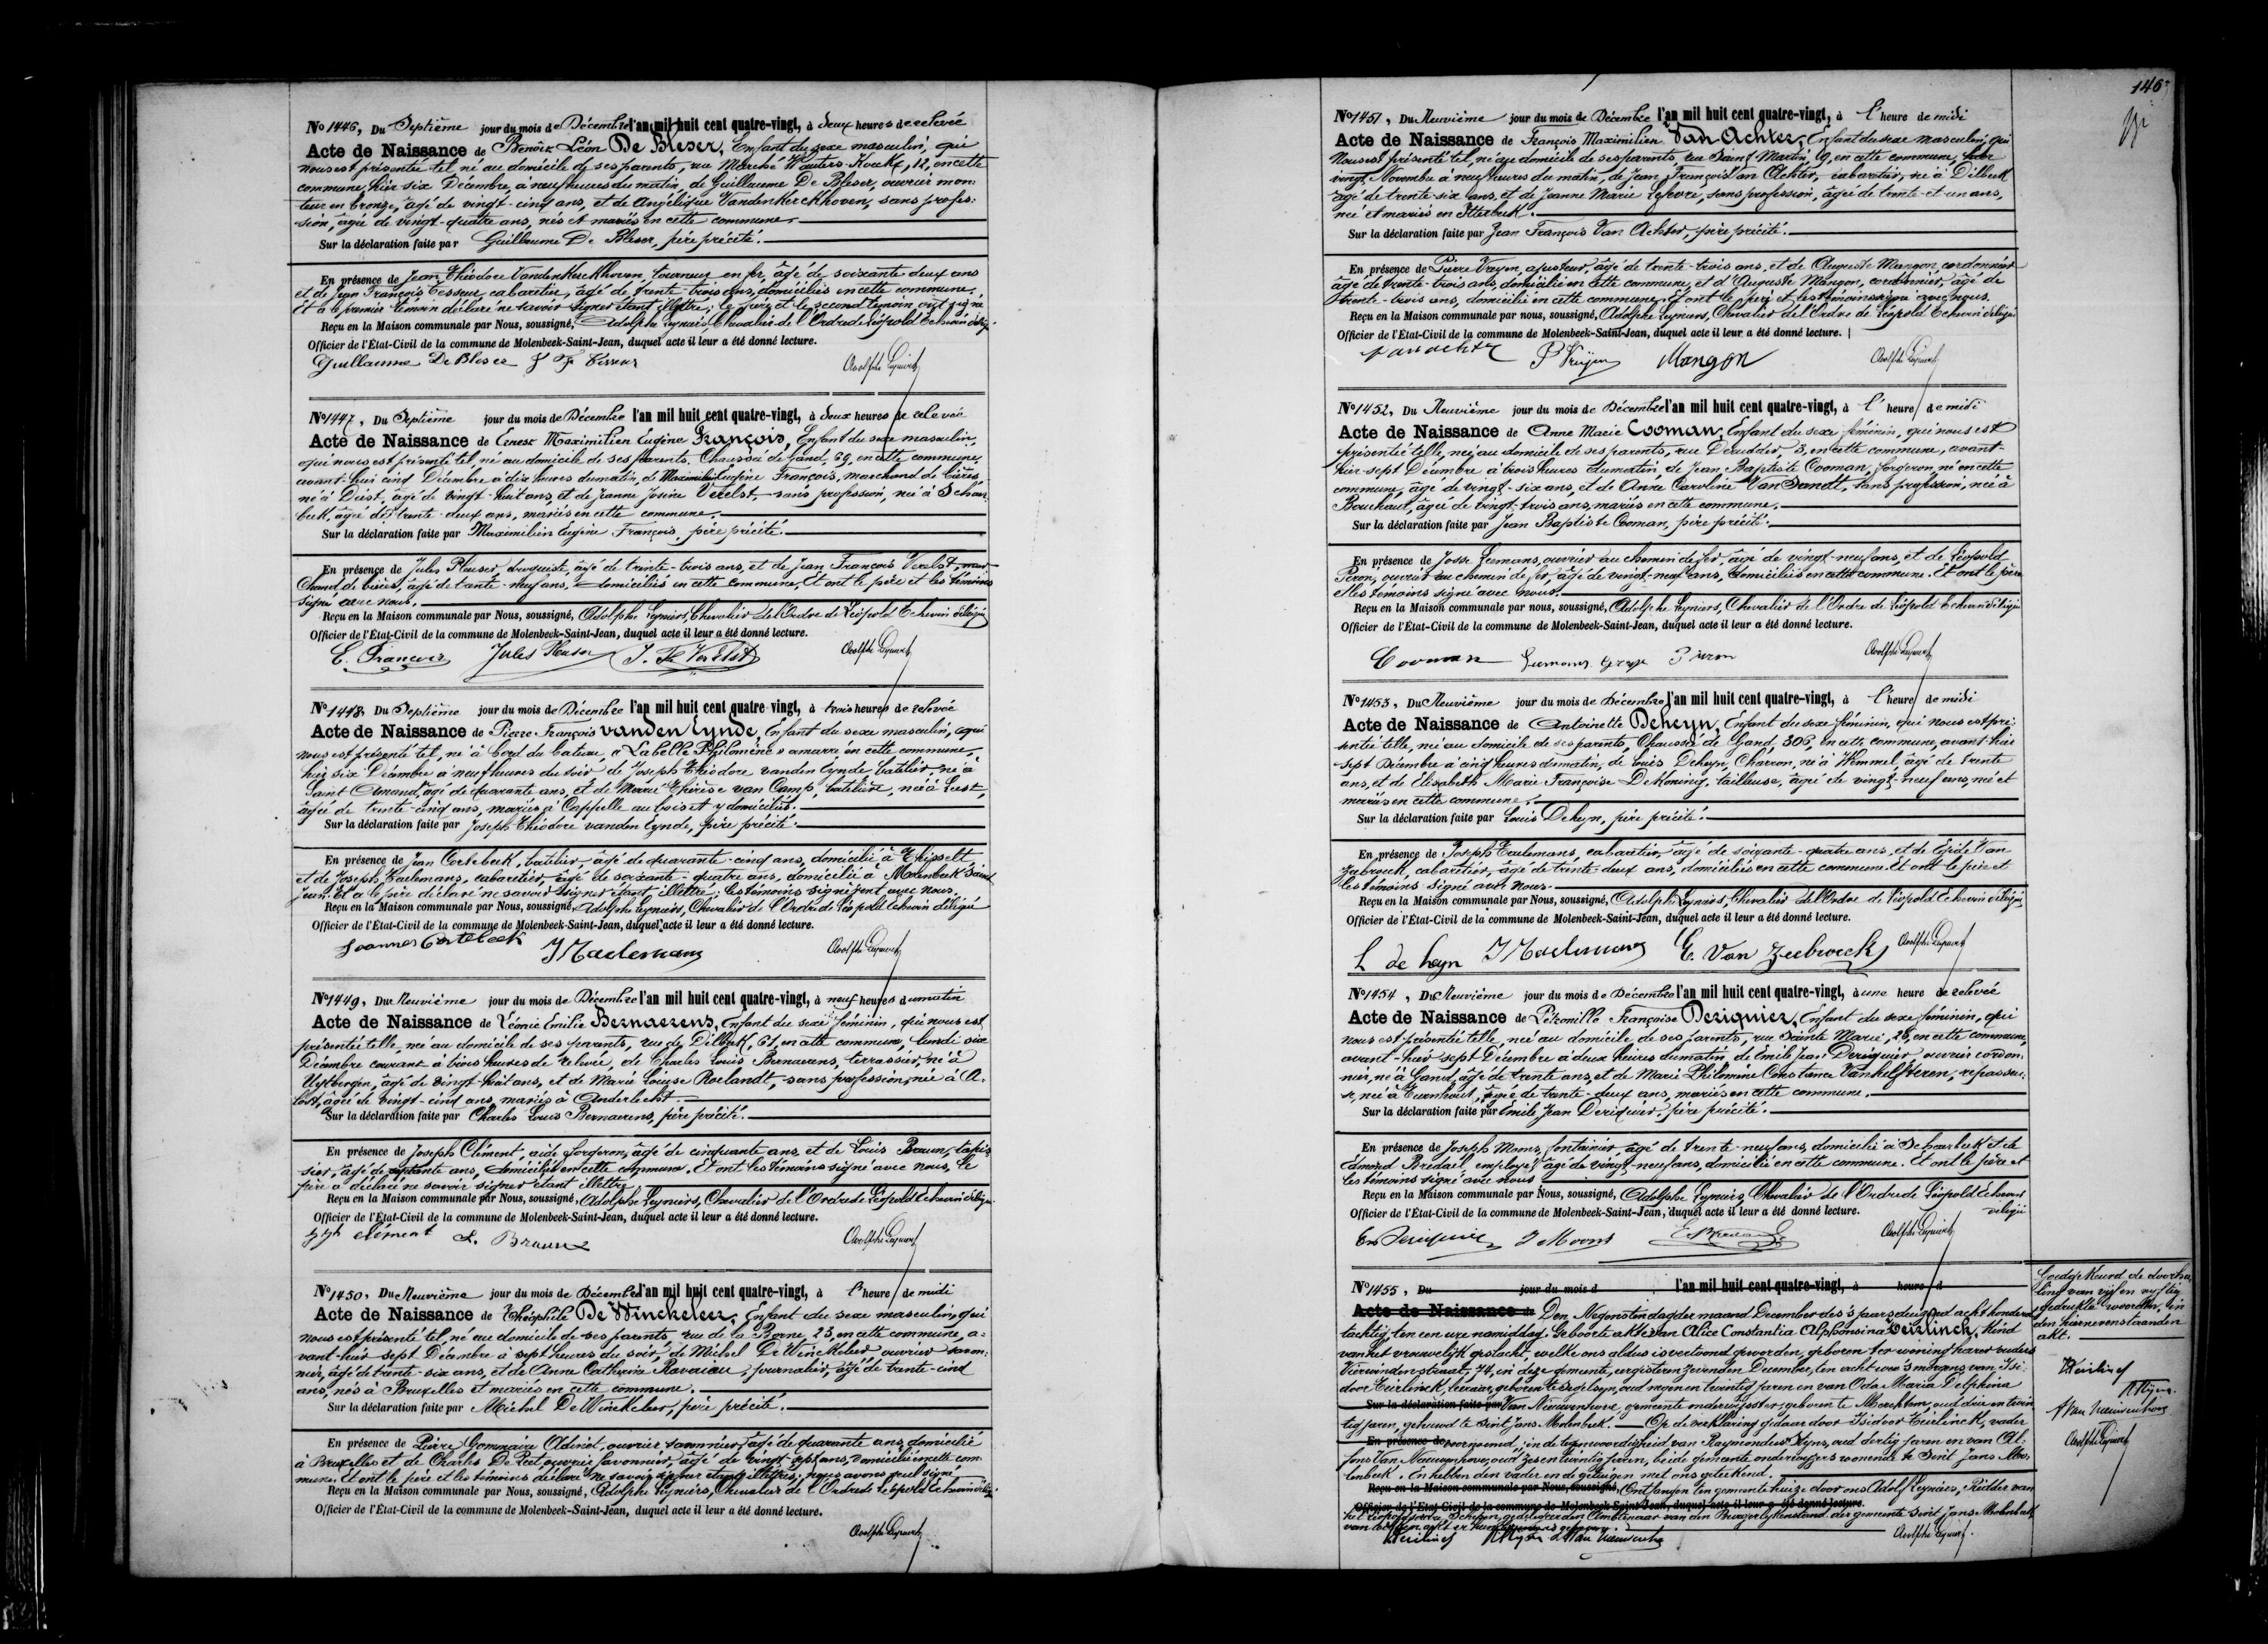 No 1446, Du Septième jour du mois de Décembre l'an mil huit cent quatre-vingt, à deux heures de relevée
Acte de Naissance de Benoît Léon De Bleser, Enfant du sexe masculin, qui
nous est présenté tel, né au domicile de ses parents, rue Marché Wauters-Koeckx, 12, en cette
commune, hier six Décembre, à neuf heures du matin, de Guillaume De Bleser, ouvrier mon-
teur en bronze, âgé de vingt-cinq ans, et de Angélique Vandenkerckhoven, sans profes-
sion, âgée de vingt-quatre ans, nés et mariés en cette commune.
Sur la déclaration faite par Guillaume De Bleser, père précité.
En présence de Jean Théodore Vandenkerckhoven, tourneur en fer, âgé de soixante-deux ans
et de Jean François Tesseur cabaretier, âgé de trente-trois ans, domiciliés en cette commune.
Et a le premier témoin déclaré ne savoir signer étant illettré; le père et le second témoin ont signé
Reçu en la Maison communale par Nous, soussigné, Adolphe Leyniers, Chevalier de l'Ordre de Léopold Echevin délégué
Officier de l'État-Civil de la commune de Molenbeek-Saint-Jean, duquel acte il leur a été donné lecture.
Guillaume De Bleser J F
No 1447, Du Septième jour du mois de Décembre l'an mil huit cent quatre-vingt, à deux heures de relevée
Acte de Naissance de Ernest Maximilien Eugène François, Enfant du sexe masculin,
qui nous est présenté tel, né au domicile de ses parents, Chaussée de Gand, 69, en cette commune,
avant-hier cinq Décembre à dix heures du matin, de Maximilien Eugène François, marchand de bières,
né à Diest, âgé de vingt-huit ans, et de Jeanne Josine Verelst, sans profession, née à Schaer-
beek, âgée de trente-deux ans, mariés en cette commune.
Sur la déclaration faite par Maximilien Eugène François, père précité.
En présence de Jules Pleuser, droguiste, âgé de trente-trois ans, et de Jean François Verelst, mar-
chand de bières, âgé de trente-neuf ans, domiciliés en cette commune, Et ont le père et les témoins
signé avec nous.
Reçu en la Maison communale par Nous, soussigné, Adolphe Leyniers, Chevalier de l'Ordre de Léopold Echevin délégué
Officier de l'État-Civil de la commune de Molenbeek-Saint-Jean, duquel acte il leur a été donné lecture.
E. François Jules Pleuser J. F. Verelst
No 1448, Du Septième jour du mois de Décembre l'an mil huit cent quatre-vingt, à trois heures de relevée
Acte de Naissance de Pierre François vanden Eynde, Enfant du sexe masculin, qui
nous est présenté tel, né à bord du bateau "La belle Philomène" amarré en cette commune,
hier six Décembre à neuf heures du soir de Joseph Théodore vanden Eynde batelier, né à
Saint Amand, âgé de quarante ans, et de Marie Thérèse van Camp, batelière, née à Leest,
âgée de trente-cinq ans, mariés à Cappelle au bois et y domiciliés.
Sur la déclaration faite par Joseph Théodore vanden Eynde, père précité.
En présence de Jean Cortebeek, batelier, âgé de quarante-cinq ans, domicilié à Thisselt
et de Joseph Taelemans, cabaretier, âgé de soixante-quatre ans, domicilié à Molenbeek Saint
Jean. Et a le père déclaré ne savoir signer étant illettré; les témoins signèrent avec nous.
Reçu en la Maison communale par Nous, soussigné, Adolphe Leyniers, Chevalier de l'Ordre de Léopold Echevin délégué
Officier de l'État-Civil de la commune de Molenbeek-Saint-Jean, duquel acte il leur a été donné lecture.
Joannes Cortebeek J Taelemans
No 1449, Du Neuvième jour du mois de Décembre l'an mil huit cent quatre-vingt, à neuf heures du matin
Acte de Naissance de Léonie Emilie Bernaerens, Enfant du sexe féminin, qui nous est
présentée telle, née au domicile de ses parents, rue de Dilbeek, 61, en cette commune, lundi six
Décembre courant à trois heures de relevée, de Charles Louis Bernaerens, terrassier, né à
Uytbergen, âgé de vingt-huit ans, et de Marie Louise Roelandt, sans profession, née à A-
lost, âgée de vingt-cinq ans, mariés à Anderlecht.
Sur la déclaration faite par Charles Louis Bernaerens, père précité.
En présence de Joseph Clément, aide forgeron, âgé de cinquante ans, et de Louis Braun, tapis-
sier, âgé de septante ans, domiciliés en cette commune. Et ont les témoins signé avec nous, le
père a déclaré ne savoir signer étant illettré.
Reçu en la Maison communale par Nous, soussigné, Adolphe Leyniers, Chevalier de l'Ordre de Léopold Echevin délégué
Officier de l'État-Civil de la commune de Molenbeek-Saint-Jean, duquel acte il leur a été donné lecture.
clément L. Braun
No 1450, Du Neuvième jour du mois de Décembre l'an mil huit cent quatre-vingt, à l'heure de midi
Acte de Naissance de Théophile De Winckeleer, Enfant du sexe masculin, qui
nous est présenté tel, né au domicile de ses parents, rue de la Borne, 23, en cette commune, a-
vant-hier sept Décembre à sept heures du soir, de Michel De Winckeleer ouvrier savon-
nier, âgé de trente-six ans, et de Anne Catherine Ravaieau, journalière, âgée de trente-cinq
ans, nés à Bruxelles et mariés en cette commune.
Sur la déclaration faite par Michel De Winckeleer, père précité.
En présence de Pierre Gommaire Adinet, ouvrier savonnier, âgé de quarante ans, domicilié
à Bruxelles et de Charles De Reet ouvrier savonnier, âgé de vingt-sept ans, domicilié en cette com-
mune. Et ont le père et les témoins déclaré ne savoir signer étant illettrés; nous avons seul signé
Reçu en la Maison communale par Nous, soussigné, Adolphe Leyniers, Chevalier de l'Ordre de Léopold Echevin délégué
Officier de l'État-Civil de la commune de Molenbeek-Saint-Jean, duquel acte il leur a été donné lecture.
146
No 1451, Du Neuvième jour du mois de Décembre l'an mil huit cent quatre-vingt, à l'heure de midi
Acte de Naissance de François Maximilien Van Achter, Enfant du sexe masculin, qui
nous est présenté tel, né au domicile de ses parents, rue Saint Martin, 19, en cette commune,
vingt Novembre à neuf heures du matin, de Jean François Van Achter, cabaretier, né à Dilbeek
âgé de trente-six ans, et de Jeanne Marie Lefevre, sans profession, âgée de trente-et-un ans,
née et mariés en Itterbeek.
Sur la déclaration faite par Jean François Van Achter, père précité.
En présence de Pierre Vruyen, ajusteur, âgé de trente-trois ans, et de Auguste Mangon, cordonnier
âgé de trente-trois ans, domiciliés en cette commune, et d'Auguste Mangon, cordonnier, âgé de
trente-trois ans, domicilié en cette commune. Et ont le père et les témoins signé avec nous.
Reçu en la Maison communale par nous, soussigné, Adolphe Leyniers, Chevalier de l'Ordre de Léopold Echevin délégué
Officier de l'État-Civil de la commune de Molenbeek-Saint-Jean, duquel acte il leur a été donné lecture.
Van achter Mangon
No 1452, Du Neuvième jour du mois de Décembre l'an mil huit cent quatre-vingt, à l'heure de midi
Acte de Naissance de Anne Marie Cooman, Enfant du sexe féminin, qui nous est
présentée telle, née au domicile de ses parents, rue Deudder, 3, en cette commune, avant-
hier sept Décembre à trois heures du matin de Jean Baptiste Cooman, forgeron, né en cette
commune, âgé de vingt-six ans, et de Anne Caroline Van Sandt, sans profession, née à
Bouchout, âgée de vingt-trois ans, mariés en cette commune.
Sur la déclaration faite par Jean Baptiste Cooman, père précité.
En présence de Josse Leemans, ouvrier au chemin de fer, âgé de vingt-neuf ans, et de Léopold
Piron, ouvrier au chemin de fer, âgé de vingt-neuf ans, domiciliés en cette commune. Et ont le père
et les témoins signé avec nous.
Reçu en la Maison communale par nous, soussigné, Adolphe Leyniers, Chevalier de l'Ordre de Léopold Echevin délégué
Officier de l'État-Civil de la commune de Molenbeek-Saint-Jean, duquel acte il leur a été donné lecture.
Cooman
No 1453, Du Neuvième jour du mois de Décembre l'an mil huit cent quatre-vingt, à l'heure de midi
Acte de Naissance de Antoinette Deheyn, Enfant du sexe féminin, qui nous est pré-
sentée telle, née au domicile de ses parents, Chaussée de Gand, 306, en cette commune, avant-hier
sept Décembre à cinq heures du matin, de Louis Deheyn, Charron, né à Wemmel, âgé de trente
ans, et de Elisabeth Marie Françoise De Koning, tailleuse, âgée de vingt-neuf ans, née et
mariés en cette commune.
Sur la déclaration faite par Louis Deheyn, père précité.
En présence de Joseph Taelemans, cabaretier, âgé de soixante-quatre ans, et de Egide Van
Zeebroeck, cabaretier, âgé de trente-deux ans, domiciliés en cette commune. Et ont le père et
les témoins signé avec nous.
Reçu en la Maison communale par Nous, soussigné, Adolphe Leyniers, Chevalier de l'Ordre de Léopold Echevin délégué
Officier de l'État-Civil de la commune de Molenbeek-Saint-Jean, duquel acte il leur a été donné lecture.
L de heyn J Taelemans E. Van Zeebroeck
No 1454, Du Neuvième jour du mois de Décembre l'an mil huit cent quatre-vingt, à une heure de relevée
Acte de Naissance de Pétronille Françoise Deriquier, Enfant du sexe féminin, qui
nous est présentée telle, née au domicile de ses parents, rue Sainte Marie, 28, en cette commune,
avant-hier sept Décembre à deux heures du matin, de Emile Jean Deriquier ouvrier cordon-
nier, né à Gand, âgé de trente ans, et de Marie Philomène Constance Van helfteren, repasseu-
se, née à Turnhout, âgée de trente-deux ans, mariés en cette commune.
Sur la déclaration faite par Emile Jean Deriquier, père précité.
En présence de Joseph Moons, fontainier, âgé de trente-neuf ans, domicilié à Schaerbeek et de
Edmond Bredael, employé, âgé de vingt-neuf ans, domicilié en cette commune. Et ont le père et
les témoins signé avec nous
Reçu en la Maison communale par Nous, soussigné, Adolphe Leyniers, Chevalier de l'Ordre de Léopold Echevin
délégué
Officier de l'État-Civil de la commune de Molenbeek-Saint-Jean, duquel acte il leur a été donné lecture.
J Moons
No 1455, Du jour du mois d l'an mil huit cent quatre-vingt, à heure d
Acte de Naissance de Den Negensten dag der maand December des jaars duizend acht honderd
tachtig, ten een ure namiddag. Geboorte akte van Alice Constantia Alphonsina Teirlinck, Kind
van het vrouwelijk geslacht, welke ons aldus is vertoond geworden, geboren ter woning harer ouders
Vierwindenstraat, 74, in deze gemeente, eergisteren zevenden December, ten acht ure 's morgens van Isi-
door Teirlinck, leeraar, geboren te Zegelsem, oud negen en twintig jaren en van Oda Maria Delphina
Sur la déclaration faite par Van Nieuwenhove, gemeente onderwijzster, geboren te Merchtem, oud drie en twin-
tig jaren, gehuwd te Sint Jans Molenbeek. Op de verklaring gedaan door Isidoor Teirlinck, vader
En présence de voornoemd, in de tegenwoordigheid van Raymondus Stijns, oud dertig jaren en van Al-
fons Van Nieuwenhove, oud zes en twintig jaren, beide gemeente onderwijzers wonende te Sint Jans Mo-
lenbeek. En hebben den vader en de getuigen met ons geteekend.
Reçu en la Maison communale par Nous, soussigné, Ontfangen ten gemeente huize door ons Adolf Leyniers, Ridder van
Officier de l'État-Civil de la commune de Molenbeek-Saint-Jean, duquel acte il leur a été donné lecture.
het Leopoldsorde, Schepen, gedelegeerden Ambtenaar van den Burgerlijken stand der gemeente Sint Jans Molenbeek
Goedgekeurd de doorha-
ling van vijf en vijftig
gedrukte woorden, in
den hiernevenstaanden
akt.